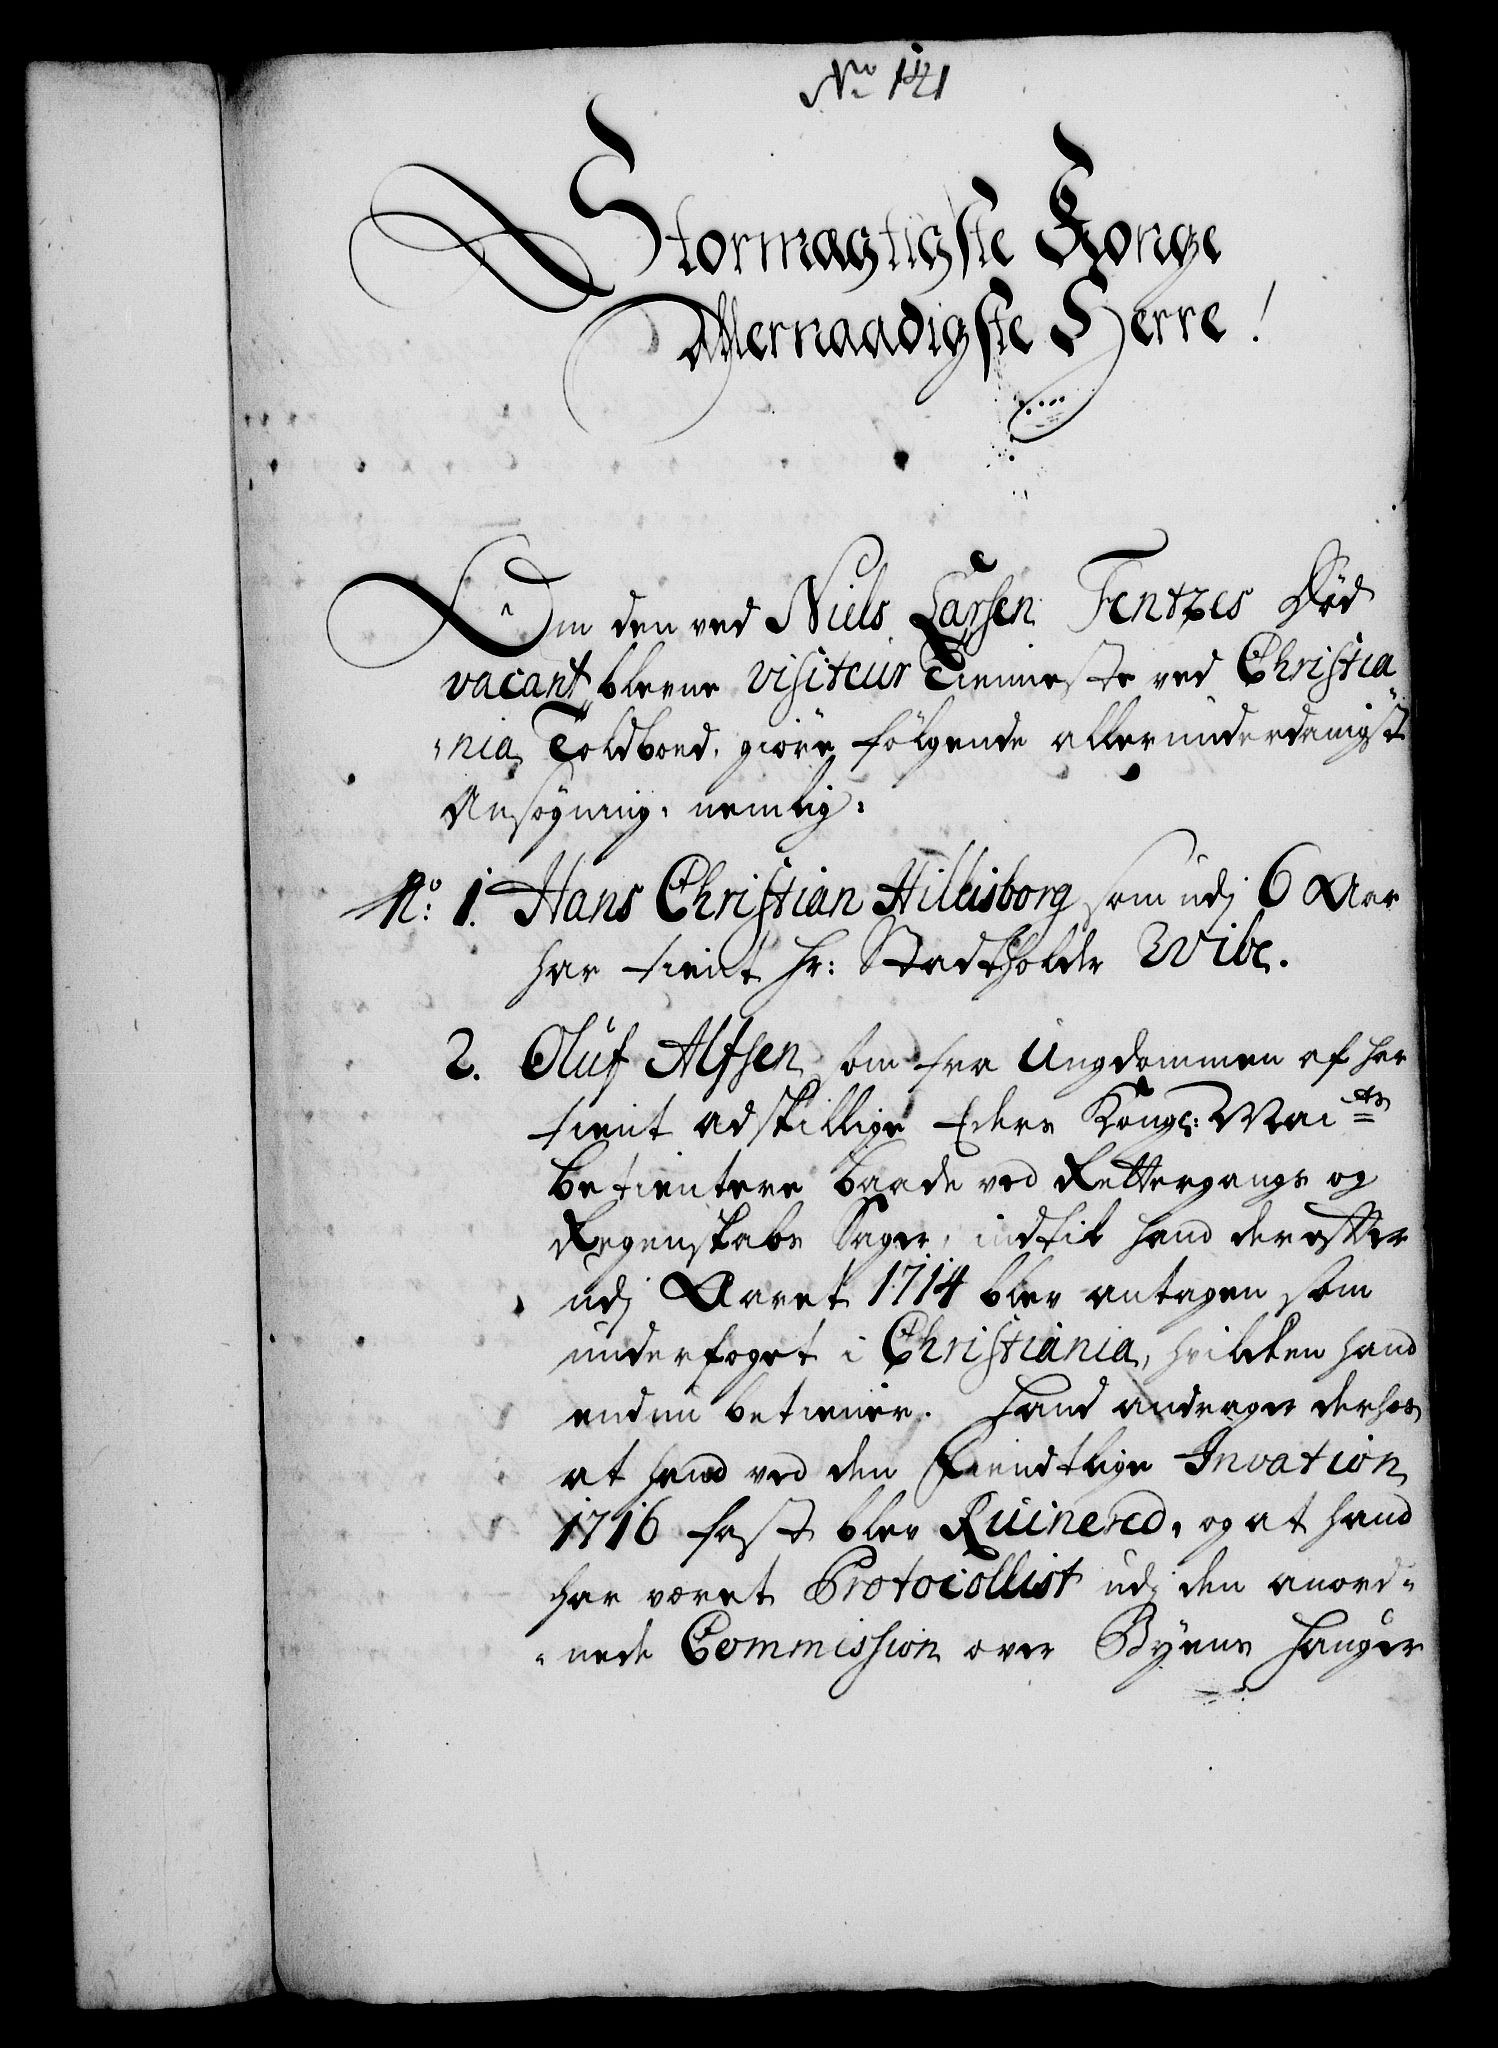 No 141
Stormægtigste Konge
Allernaadigste Herre!
Om den ved Niels Larsen Fentzes Død
vacant blevne visiteur Tienneste ved Christia
-nia Toldboed, giøre følgende allerunderdanigst
Ansøgning, nemlig:
No: 1. Hans Christian Hilleisborg som udj 6 Aar
har tient Hr: Stadtholder Wibe.
2. Oluf Alfsen som fra Ungdommen af har
tient adskillige Eders Kongl: Mai:ts
betientere baade ved Rettergangs og
Regenskabs Sager, indtil hand derefter
udj Aaret 1714 blev antagen som
underfoget i Christiania, hvilcken hand
endnu betiener. Hand andrager derhos
at hand ved den Fiendtlige Invation
1716 fast blev Ruinered, og at hand
har været Protocollist udj den anord-
-nede Commission over Byens Hauger